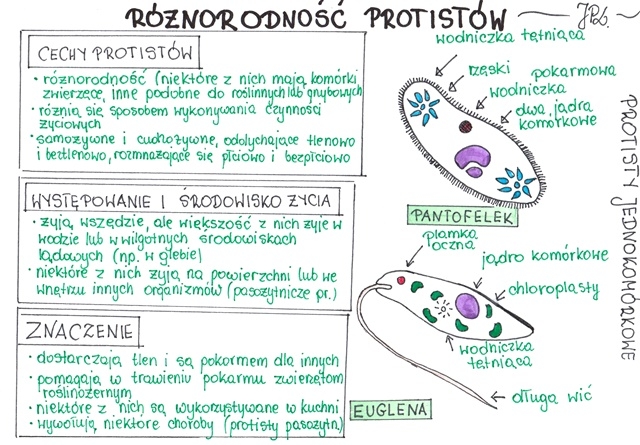 RÓŻNORODNOŚĆ PROTISTÓW
CECHY PROTISTÓW
• różnorodność (niektóre z nich mają komórki
zwierzęce, inne podobne do roślinnych lub grzybowych
• różnią się sposobem wykonywania czynności
życiowych
• samożywne i cudzożywne, oddychające tlenowo
i beztlenowo, rozmnażające się płciowo i bezpłciowo
WYSTĘPOWANIE I ŚRODOWISKO ŻYCIA
• żyją wszędzie, ale większość z nich żyje w
wodzie lub w wilgotnych środowiskach
lądowych (np. w glebie)
• niektóre z nich żyją na powierzchni lub we
wnętrzu innych organizmów (pasożytnicze pr.)
ZNACZENIE
• dostarczają tlen i są pokarmem dla innych
• pomagają w trawieniu pokarmu zwierzętom
roślinożernym
• niektóre z nich są wykorzystywane w kuchni
• wywołują niektóre choroby (protisty pasożytn.)
PROTISTY JEDNOKOMÓRKOWE
wodniczka tętniąca
rzęski
pokarmowa
wodniczka
dwa jądra
komórkowe
PANTOFELEK
plamka
oczna
jądro komórkowe
chloroplasty
wodniczka
tętniąca
długa wić
EUGLENA